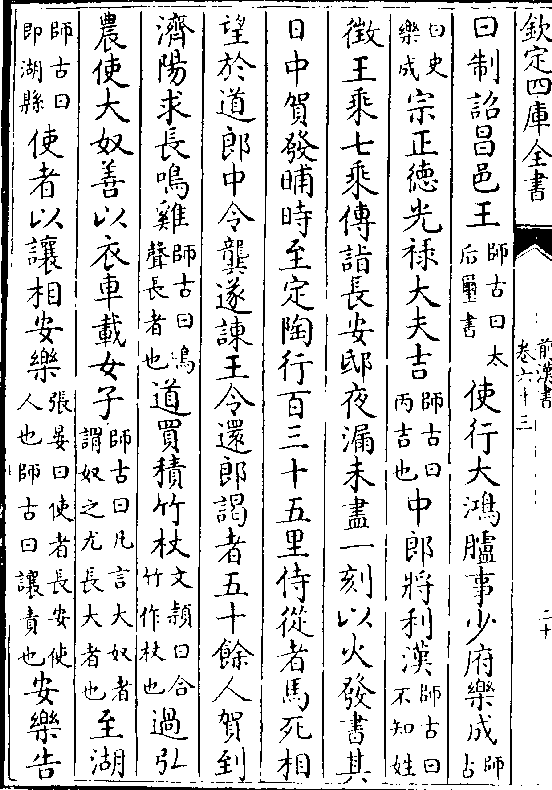 欽定四庫全書
前漢書
卷六十三
二十
曰制詔昌邑王師古曰太后璽書使行大鴻臚事少府樂成師古
曰史樂成宗正德光祿大夫吉師古曰丙吉也中郎將利漢師古曰不知姓
徵王乘七乘傳詣長安邸夜漏未盡一刻以火發書其
日中賀發晡時至定陶行百三十五里侍從者馬死相
望於道郎中令龔遂諫王令還郎謁者五十餘人賀到
濟陽求長鳴雞師古曰鳴聲長者也道買積竹杖文頴曰合竹作杖也過弘
農使大奴善以衣車載女子師古曰凡言大奴者謂奴之尤長大者也至湖
師古曰即湖縣使者以讓相安樂張晏曰使者長安使人也師古曰讓責也安樂告